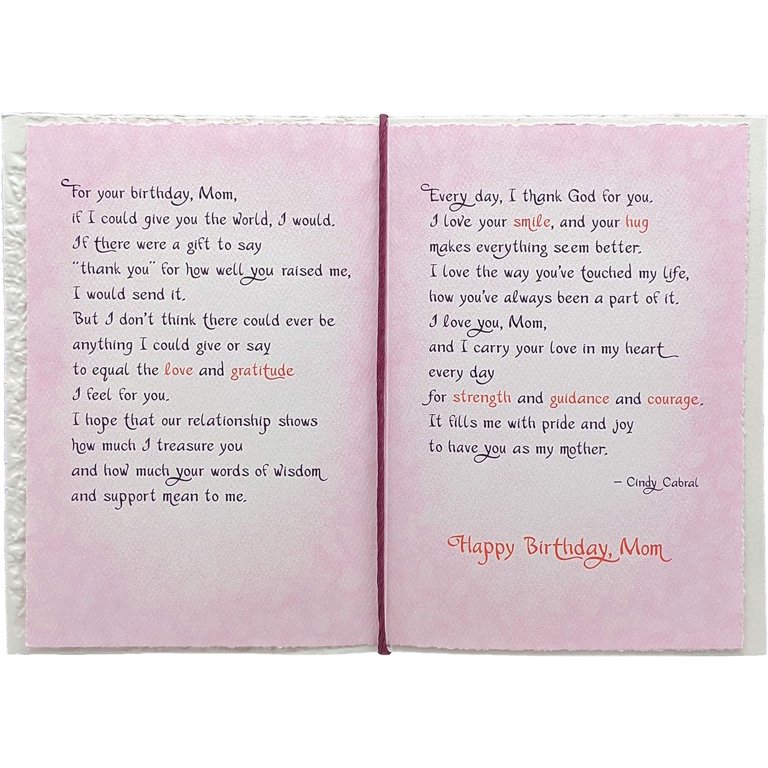 For your birthday, Mom,
if I could give you the world, I would.
If there were a gift to say
"thank you" for how well you raised me,
I would send it.
But I don't think there could ever be
anything I could give or say
to equal the love and gratitude
I feel for you.
I hope that our relationship shows
how much I treasure you
and how much your words of wisdom
and support mean to me.
Every day, I thank God for you.
I love your smile, and your hug
makes everything seem better.
I love the way you've touched my life,
how you've always been a part of it.
I love you, Mom,
and I carry your love in my heart
every day
for strength and guidance and courage.
It fills me with pride and joy
to have you as my mother.
– Cindy Cabral
Happy Birthday, Mom